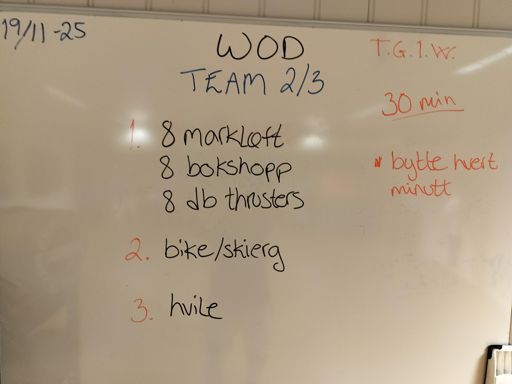 19/11-25
WOD
TEAM 2/3
T.G.I.W.
30 min
* bytte hvert
minutt
1. 8 markløft
8 bokshopp
8 db thrusters
2. bike/skierg
3. hvile